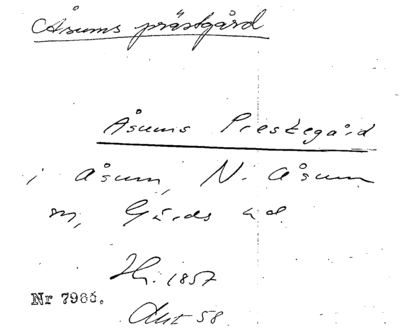 Åsums prästgård
Åsums Prestegård
i Åsum, N. Åsum
sn, Gärds hd
Hi. 1857
Nr 7986.
Akt 58